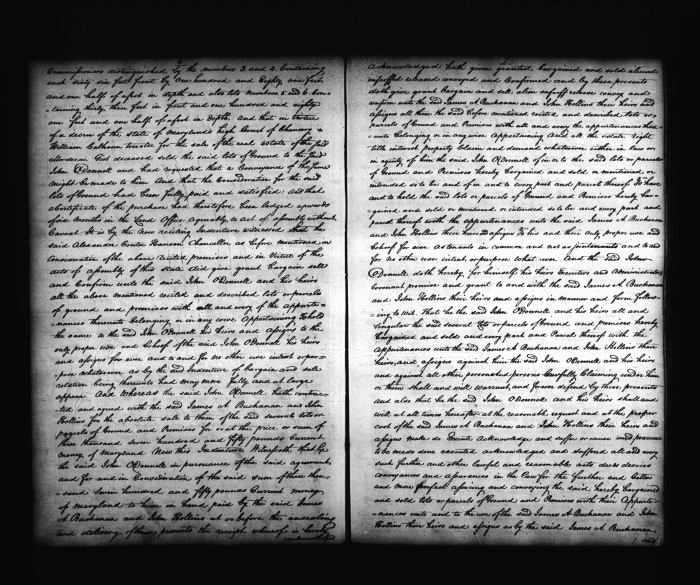 Commissioners distinguished by the numbers 3 and 4 Containing
each sixty six feet front by one hundred and Eighty one feet
and one half of a foot in depth and also lots Numbers 5 and 6 con
-taining thirty three feet in front and one hundred and eighty
one feet and one half of a foot in depth. And that in virtue
of a decree of the state of Maryland's high Court of Chancery
William Calhoun trustee for the sale of the real estate of the said
deceased sold the said lots of Ground to the said
John O'Donnell and had requested that a Conveyance of the same
might be made to him And that the Consideration for the said
lots of Ground had been fully paid and satisfied: and that
a Certificate of the purchase had therefore been lodged upwards
of six Months in the Land Office agreeably to act of assembly without
Caveat. It is by the now reciting Indenture witnessed that he
the said Alexander Contee Hanson Chancellor as before mentioned in
Consideration of the above recited premises and in Virtue of the
acts of assembly of this state did give grant Bargain sell
and Confirm unto the said John O'Donnell and his heirs
all the above mentioned recited and described lots or parcels
of ground and premises with all and every of the apperte-
-nances thereunto belonging or in any wise Appertaining to hold
the same to the said John O'Donnell his heirs and assigns to the
only proper use and behoof of the said John O'Donnell his heirs
and assigns for ever and to and for no other use intent or purpo
-se whatsoever as by the said Indenture of bargain and sale
relation being thereunto had may more fully and at large
appear. And Whereas the said John O'Donnell hath contrac
-ted and agreed with the said James A Buchanan and John
Hollins for the absolute sale to them of the said several lots or
parcels of Ground and Premises for or at the price or sum of
three thousand seven hundred and fifty pounds Current
money of Maryland Now this Indenture Witnesseth that he
the said John O'Donnell in pursuance of the said agreement
and for and in Consideration of the said sum of three thou-
-sand Seven hundred and fifty pounds Current money
of Maryland to him in hand paid by the said James
A Buchanan and John Hollins at or before the ensealing
and delivery of these presents the receipt whereof is hereby
Acknowledged hath given granted, bargained and sold aliened
enfeoffed released conveyed and Confirmed and by these presents
doth give grant bargain and sell alien enfeoff release convey and
confirm unto the said James A Buchanan and John Hollins their heirs and
assigns all them the said before mentioned recited and described lots or
parcels of Ground and Premises with all and every the appurtenances there-
unto Belonging or in anywise Appertaining And all the estate right
title interest property Claim and demand whatsoever either in law or
in equity of him the said John O'Donnell of in or to the said lots or parcels
of Ground and Premises hereby bargained and sold or mentioned or
intended so to be and of in and to every part and parcel thereof. To have
and to hold the said lots or parcels of Ground and Premises hereby bar-
gained and sold or mentioned or intended so to be and every part and
parcel thereof with the appurtenances unto the said James A Buchanan
and John Hollins their heirs and assigns To his and their only proper use and
behoof for ever as tenants in common and not as jointenants and to and
for no other use intent or purpose what ever. And the said John
O'Donnell doth hereby, for himself his heirs Executors and Administrators
Covenant promise and grant to and with the said James A Buchanan
and John Hollins their heirs and assigns in manner and form follow-
-ing to wit. That he the said John O'Donnell and his heirs all and
singular the said several lots or parcels of Ground and premises hereby
bargained and sold and every part and Parcel thereof with the
Appurtenances unto the said James A Buchanan and John Hollins their
heirs and assigns against him the said John O'Donnell and his heirs
and against all other person and persons lawfully Claiming under him
or them shall and will warrant and forever defend by these presents
and also that he the said John O'Donnell and his heirs shall and
will at all times hereafter at the reasonable request and at the proper
cost of the said James A Buchanan and John Hollins their heirs and
assigns make do Execute Acknowledge and suffer or cause and procure
to be made done executed acknowledged and suffered all and every
such further and other lawful and reasonable acts deeds devices
conveyances and assurances in the law for the further and better
and more perfect assuring and conveying the said hereby bargained
and sold lots or parcels of Ground and Premises with their Appurte-
nances unto and to the use of the said James A Buchanan and John
Hollins their heirs and assigns as by the said James A Buchanan
and